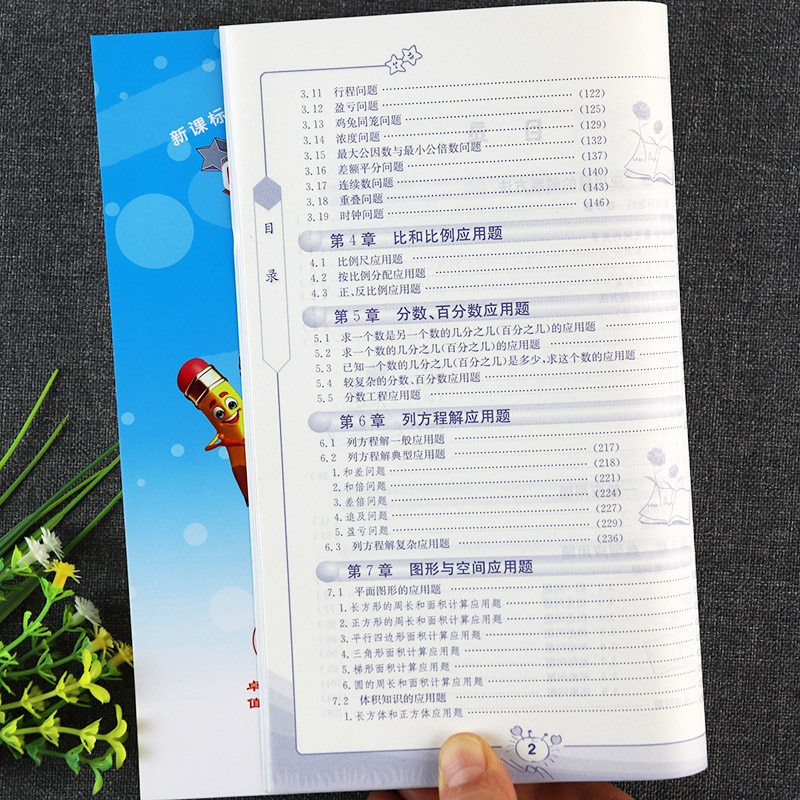 新课标
目录
3.11 行程问题
3.12 盈亏问题 (122)
3.13 鸡兔同笼问题 (125)
3.14 浓度问题 (129)
3.15 最大公因数与最小公倍数问题 (132)
3.16 差额平分问题 (137)
3.17 连续数问题 (140)
3.18 重叠问题 (143)
3.19 时钟问题 (146)
第4章 比和比例应用题
4.1 比例尺应用题
4.2 按比例分配应用题
4.3 正、反比例应用题
第5章 分数、百分数应用题
5.1 求一个数是另一个数的几分之几(百分之几)的应用题
5.2 求一个数的几分之几(百分之几)的应用题
5.3 已知一个数的几分之几(百分之几)是多少,求这个数的应用题
5.4 较复杂的分数、百分数应用题
5.5 分数工程应用题
第6章 列方程解应用题
6.1 列方程解一般应用题
6.2 列方程解典型应用题 (217)
1.和差问题 (218)
2.和倍问题 (221)
3.差倍问题 (224)
4.追及问题 (227)
5.盈亏问题 (229)
6.3 列方程解复杂应用题 (236)
第7章 图形与空间应用题
7.1 平面图形的应用题
1.长方形的周长和面积计算应用题
2.正方形的周长和面积计算应用题
3.平行四边形面积计算应用题
4.三角形面积计算应用题
5.梯形面积计算应用题
6.圆的周长和面积计算应用题
7.2 体积知识的应用题
1.长方体和正方体应用题
2
卓
值